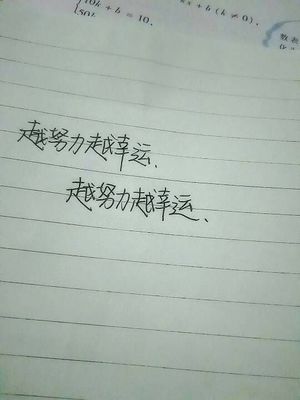 kx + b (k ≠ 0),
10k + b = 10,
数表
越努力越幸运、
越努力越幸运、